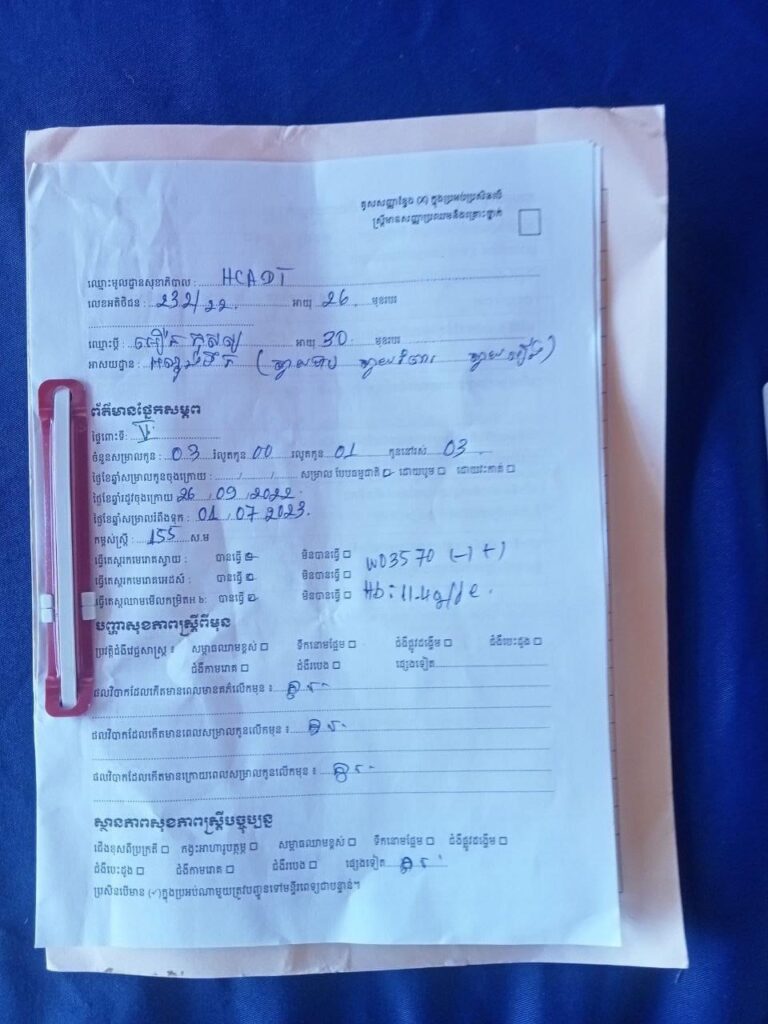 គូសសញ្ញាខ្វែង (X) ក្នុងប្រអប់ប្រសិនបើ
ស្ត្រីមានសញ្ញាប្រឈមនឹងគ្រោះថ្នាក់
ឈ្មោះមូលដ្ឋានសុខាភិបាល : HCADT
លេខអតិថិជន : 232/22. អាយុ 26. មុខរបរ
ឈ្មោះប្តី : អាយុ 30 មុខរបរ
អាសយដ្ឋាន :
ព័ត៌មានផ្នែកសម្ភព
ផ្ទៃពោះទី: V
ចំនួនសម្រាលកូន : 03 រំលូតកូន 00 រលូតកូន 01 កូននៅរស់ 03
ថ្ងៃខែឆ្នាំសម្រាលកូនចុងក្រោយ : ......./......./....... សម្រាល បែបធម្មជាតិ ដោយបូម ដោយវះកាត់
ថ្ងៃខែឆ្នាំរដូវចុងក្រោយ 26 / 09 / 2022
ថ្ងៃខែឆ្នាំសម្រាលរំពឹងទុក : 01 / 07 2023.
កម្ពស់ស្ត្រី : 155 ស.ម
ធ្វើតេស្តរកមេរោគស្វាយ : បានធ្វើ មិនបានធ្វើ W03570 (-) (+)
ធ្វើតេស្តរកមេរោគអេដស៍ : បានធ្វើ មិនបានធ្វើ
ធ្វើតេស្តឈាមមើលកម្រិតH b: បានធ្វើ មិនបានធ្វើ Hb: 11.4g/de.
បញ្ហាសុខភាពស្ត្រីពីមុន
ប្រវត្តិជំងឺវេជ្ជសាស្ត្រ ៖ សម្ពាធឈាមខ្ពស់ ទឹកនោមផ្អែម ជំងឺផ្លូវដង្ហើម ជំងឺបេះដូង
ជំងឺកាមរោគ ជំងឺរបេង ផ្សេងទៀត
ផលវិបាកដែលកើតមានពេលមានគភ៌លើកមុន ៖ គ្មាន
ផលវិបាកដែលកើតមានពេលសម្រាលកូនលើកមុន ៖ គ្មាន
ផលវិបាកដែលកើតមានក្រោយពេលសម្រាលកូនលើកមុន ៖ គ្មាន
ស្ថានភាពសុខភាពស្ត្រីបច្ចុប្បន្ន
ជើងខុសពីប្រក្រតី កង្វះអាហារូបត្ថម្ភ សម្ពាធឈាមខ្ពស់ ទឹកនោមផ្អែម ជំងឺផ្លូវដង្ហើម
ជំងឺបេះដូង ជំងឺកាមរោគ ជំងឺរបេង ផ្សេងទៀត គ្មាន
ប្រសិនបើមាន (✓)ក្នុងប្រអប់ណាមួយត្រូវបញ្ជូនទៅមន្ទីរពេទ្យជាបន្ទាន់។